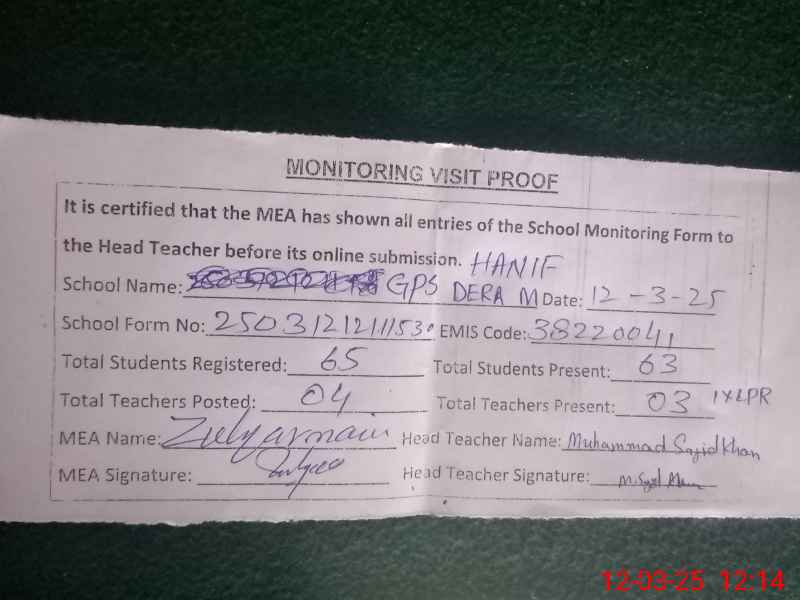 MONITORING VISIT PROOF
It is certified that the MEA has shown all entries of the School Monitoring Form to
the Head Teacher before its online submission. HANIF
School Name: GPS DERA M Date: 12-3-25
School Form No: 250312121111530 EMIS Code: 38220041
Total Students Registered: 65 Total Students Present: 63
Total Teachers Posted: 04 Total Teachers Present: 03 1XLPR
MEA Name: Zulqarnain Head Teacher Name: Muhammad Sajid Khan
MEA Signature: Head Teacher Signature:
12-03-25 12:14